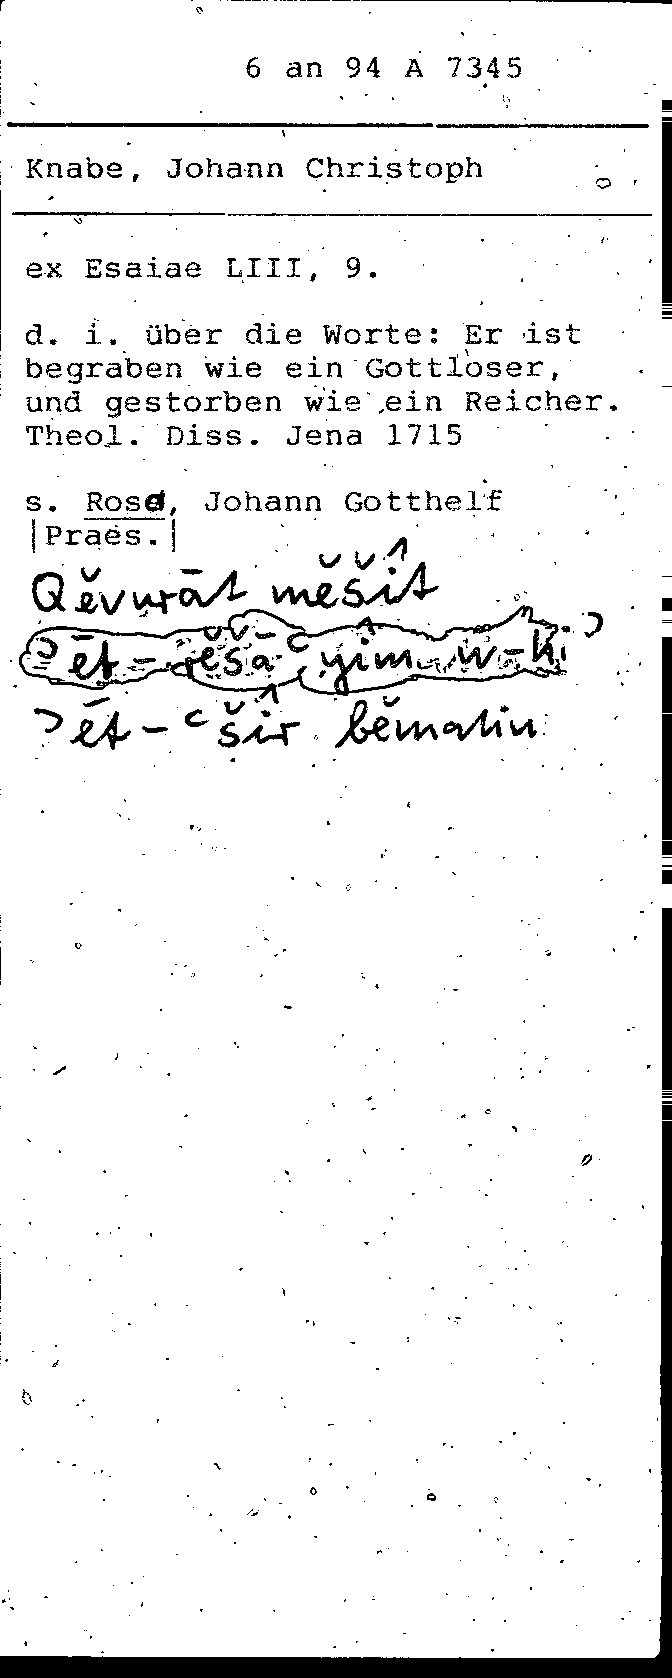 6 an 94 A 7345
Knabe, Johann Christoph
ex Esaiae LIII, 9.
d. i. über die Worte: Er ist
begraben wie ein Gottloser,
und gestorben wie ein Reicher.
Theol. Diss. Jena 1715
s. Rosa, Johann Gotthelf
|Praes.|
Qĕvurāt mĕšît
ʾēt-rĕšāʿyîm w-ki
ʾēt-ʿšîr bĕmatiu